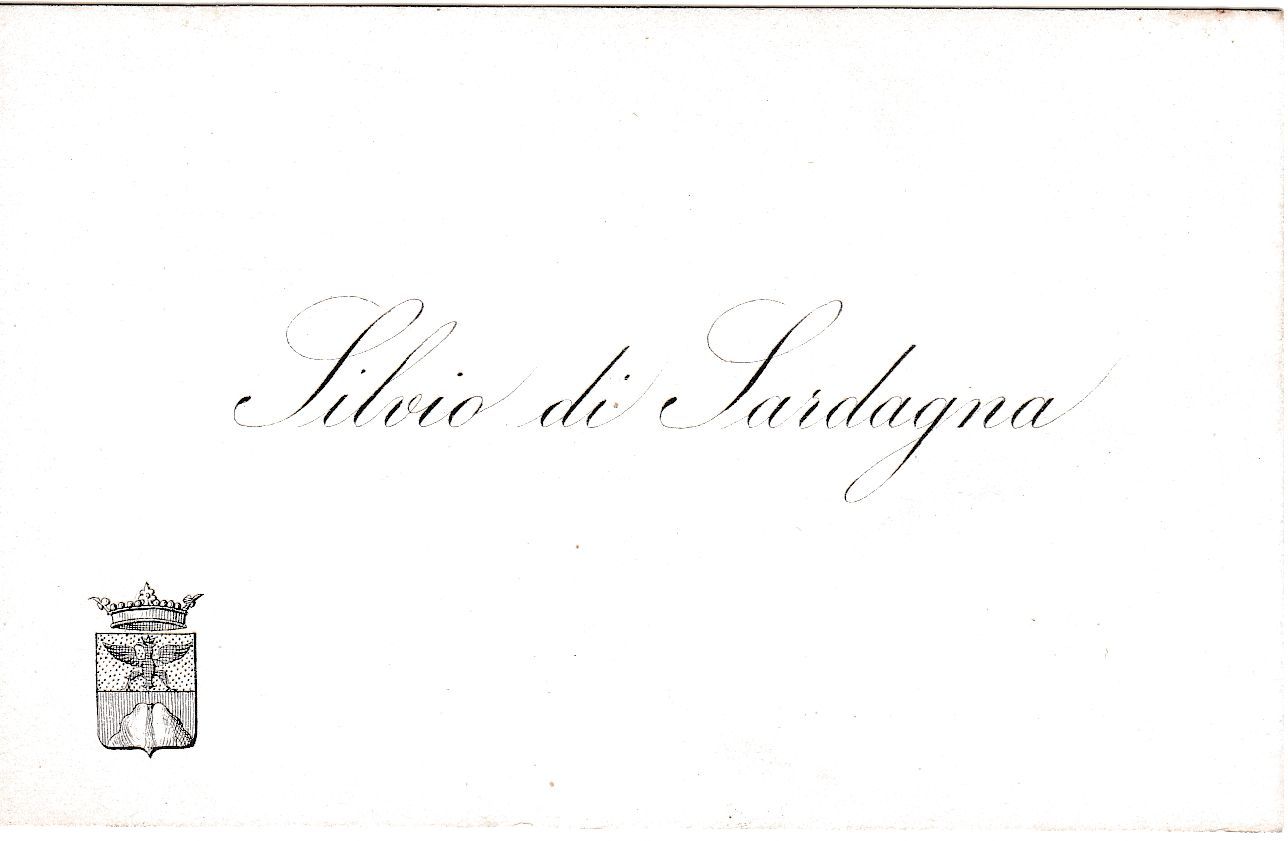 Silvio di Sardagna